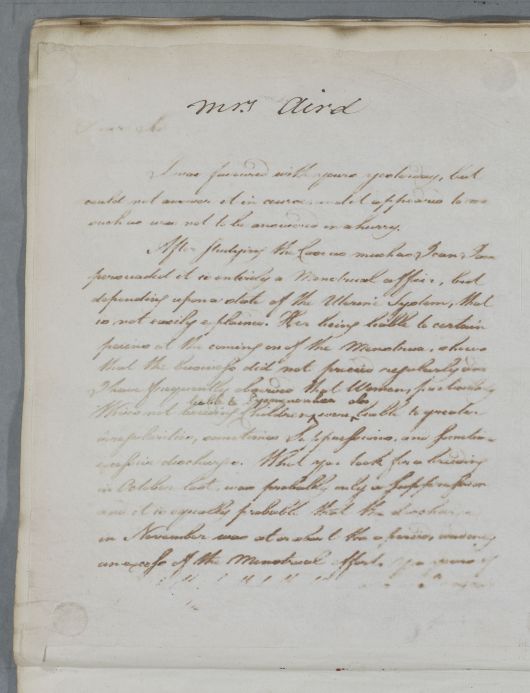 Mrs Aird
Dear Sir
I was favoured with yours yesterday, but
could not answer it in course, and it appeared to me
such as was not to be answered in a hurry.
After studying the Case as much as I can, I am
persuaded it is entirely a Menstrual affair, but
depending upon a state of the Uterine System, that
is not easily explained. Her being liable to certain
pains at the coming on of the Menstrua, shows
that the business did not proceed regularly and
I have frequently observed that Women, particularly
liable to
Those not bearing Children, are liable to greater
irregularities, sometimes Suppressions, and sometimes
excessive discharge. What you took for a breeding
in October last, was probably only a Suppression
and it is equally probable that the discharge
in November was at or about the period, and only
an excess of the Menstrual effort.